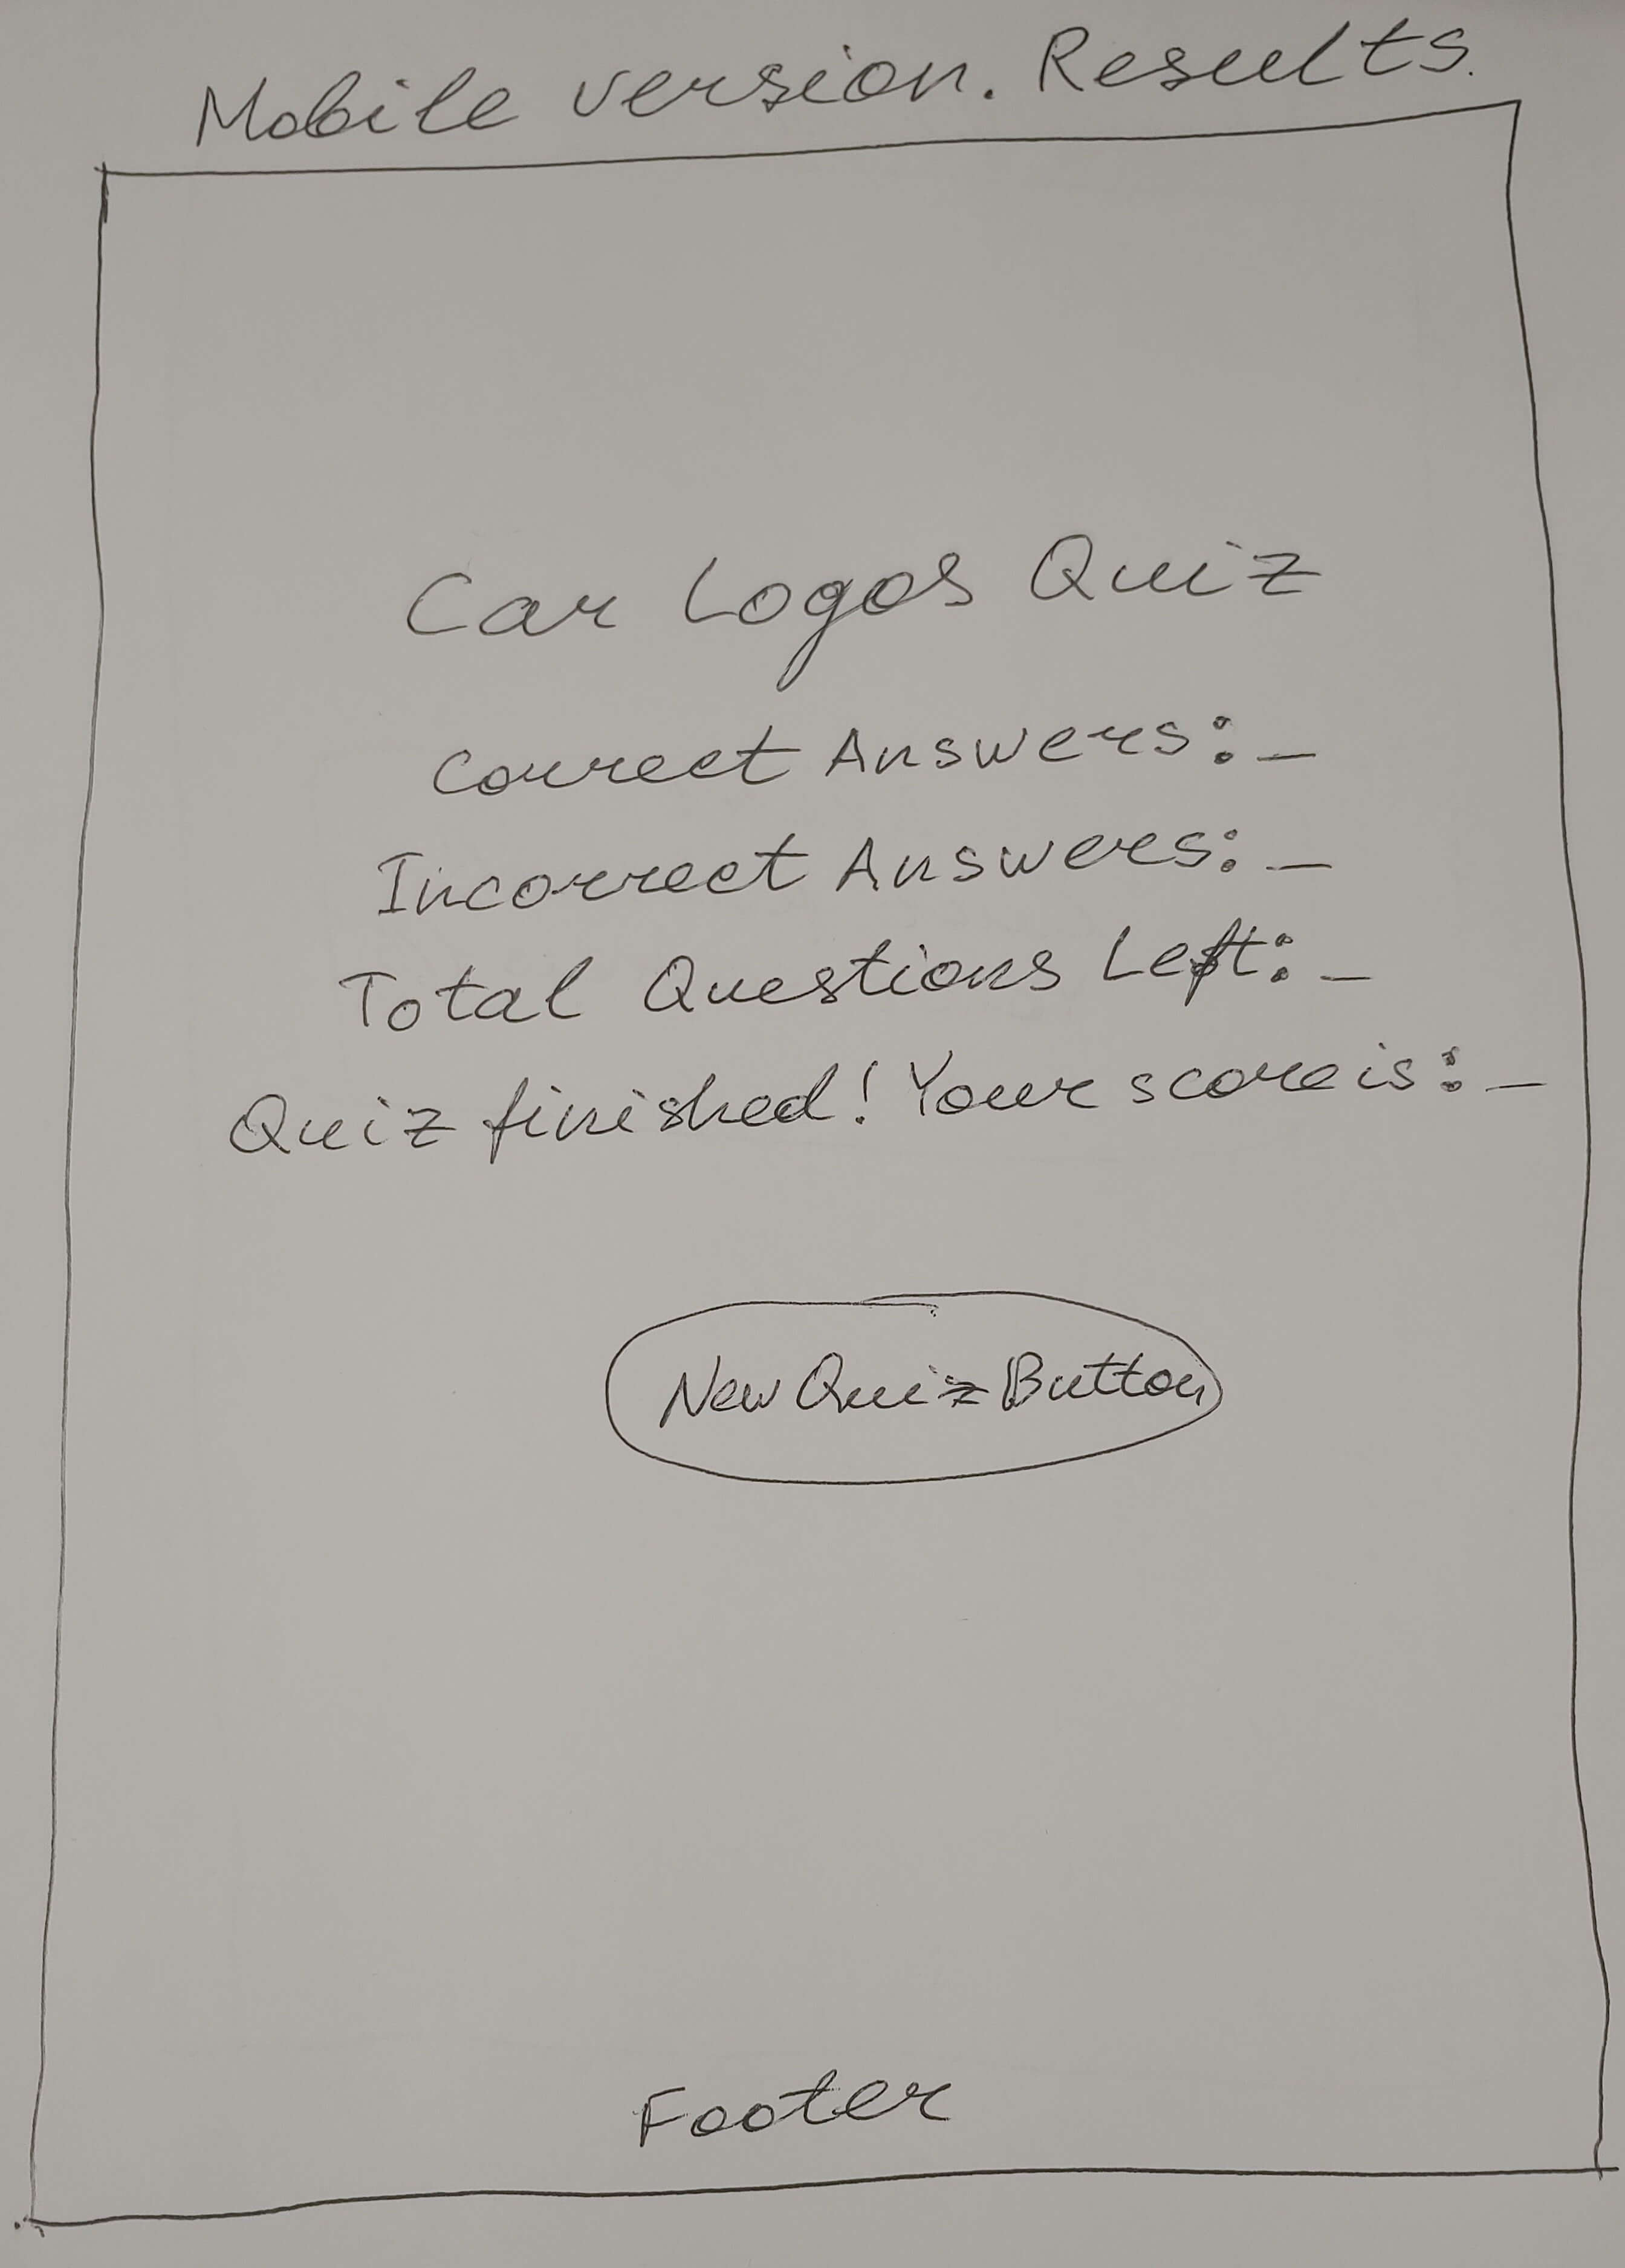 Mobile version. Results.
Car Logos Quiz
Correct Answers: _
Incorrect Answers: _
Total Questions Left: _
Quiz finished! Your score is: _
New Quiz Button
Footer